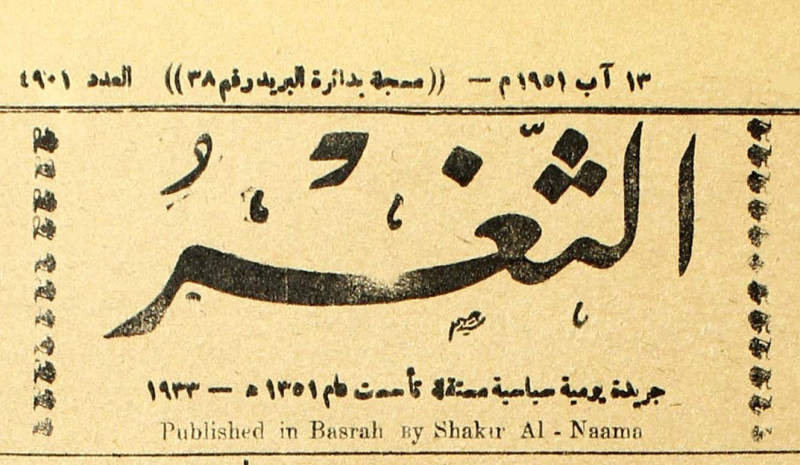 ١٣ آب ١٩٥١ م — ((مسجلة بدائرة البريد رقم ٣٨)) العدد ٤٩٠١
الثَّغْرُ
جريدة يومية سياسية مستقلة تأسست عام ١٣٥١ ه — ١٩٣٣
Published in Basrah By Shakir Al - Naama